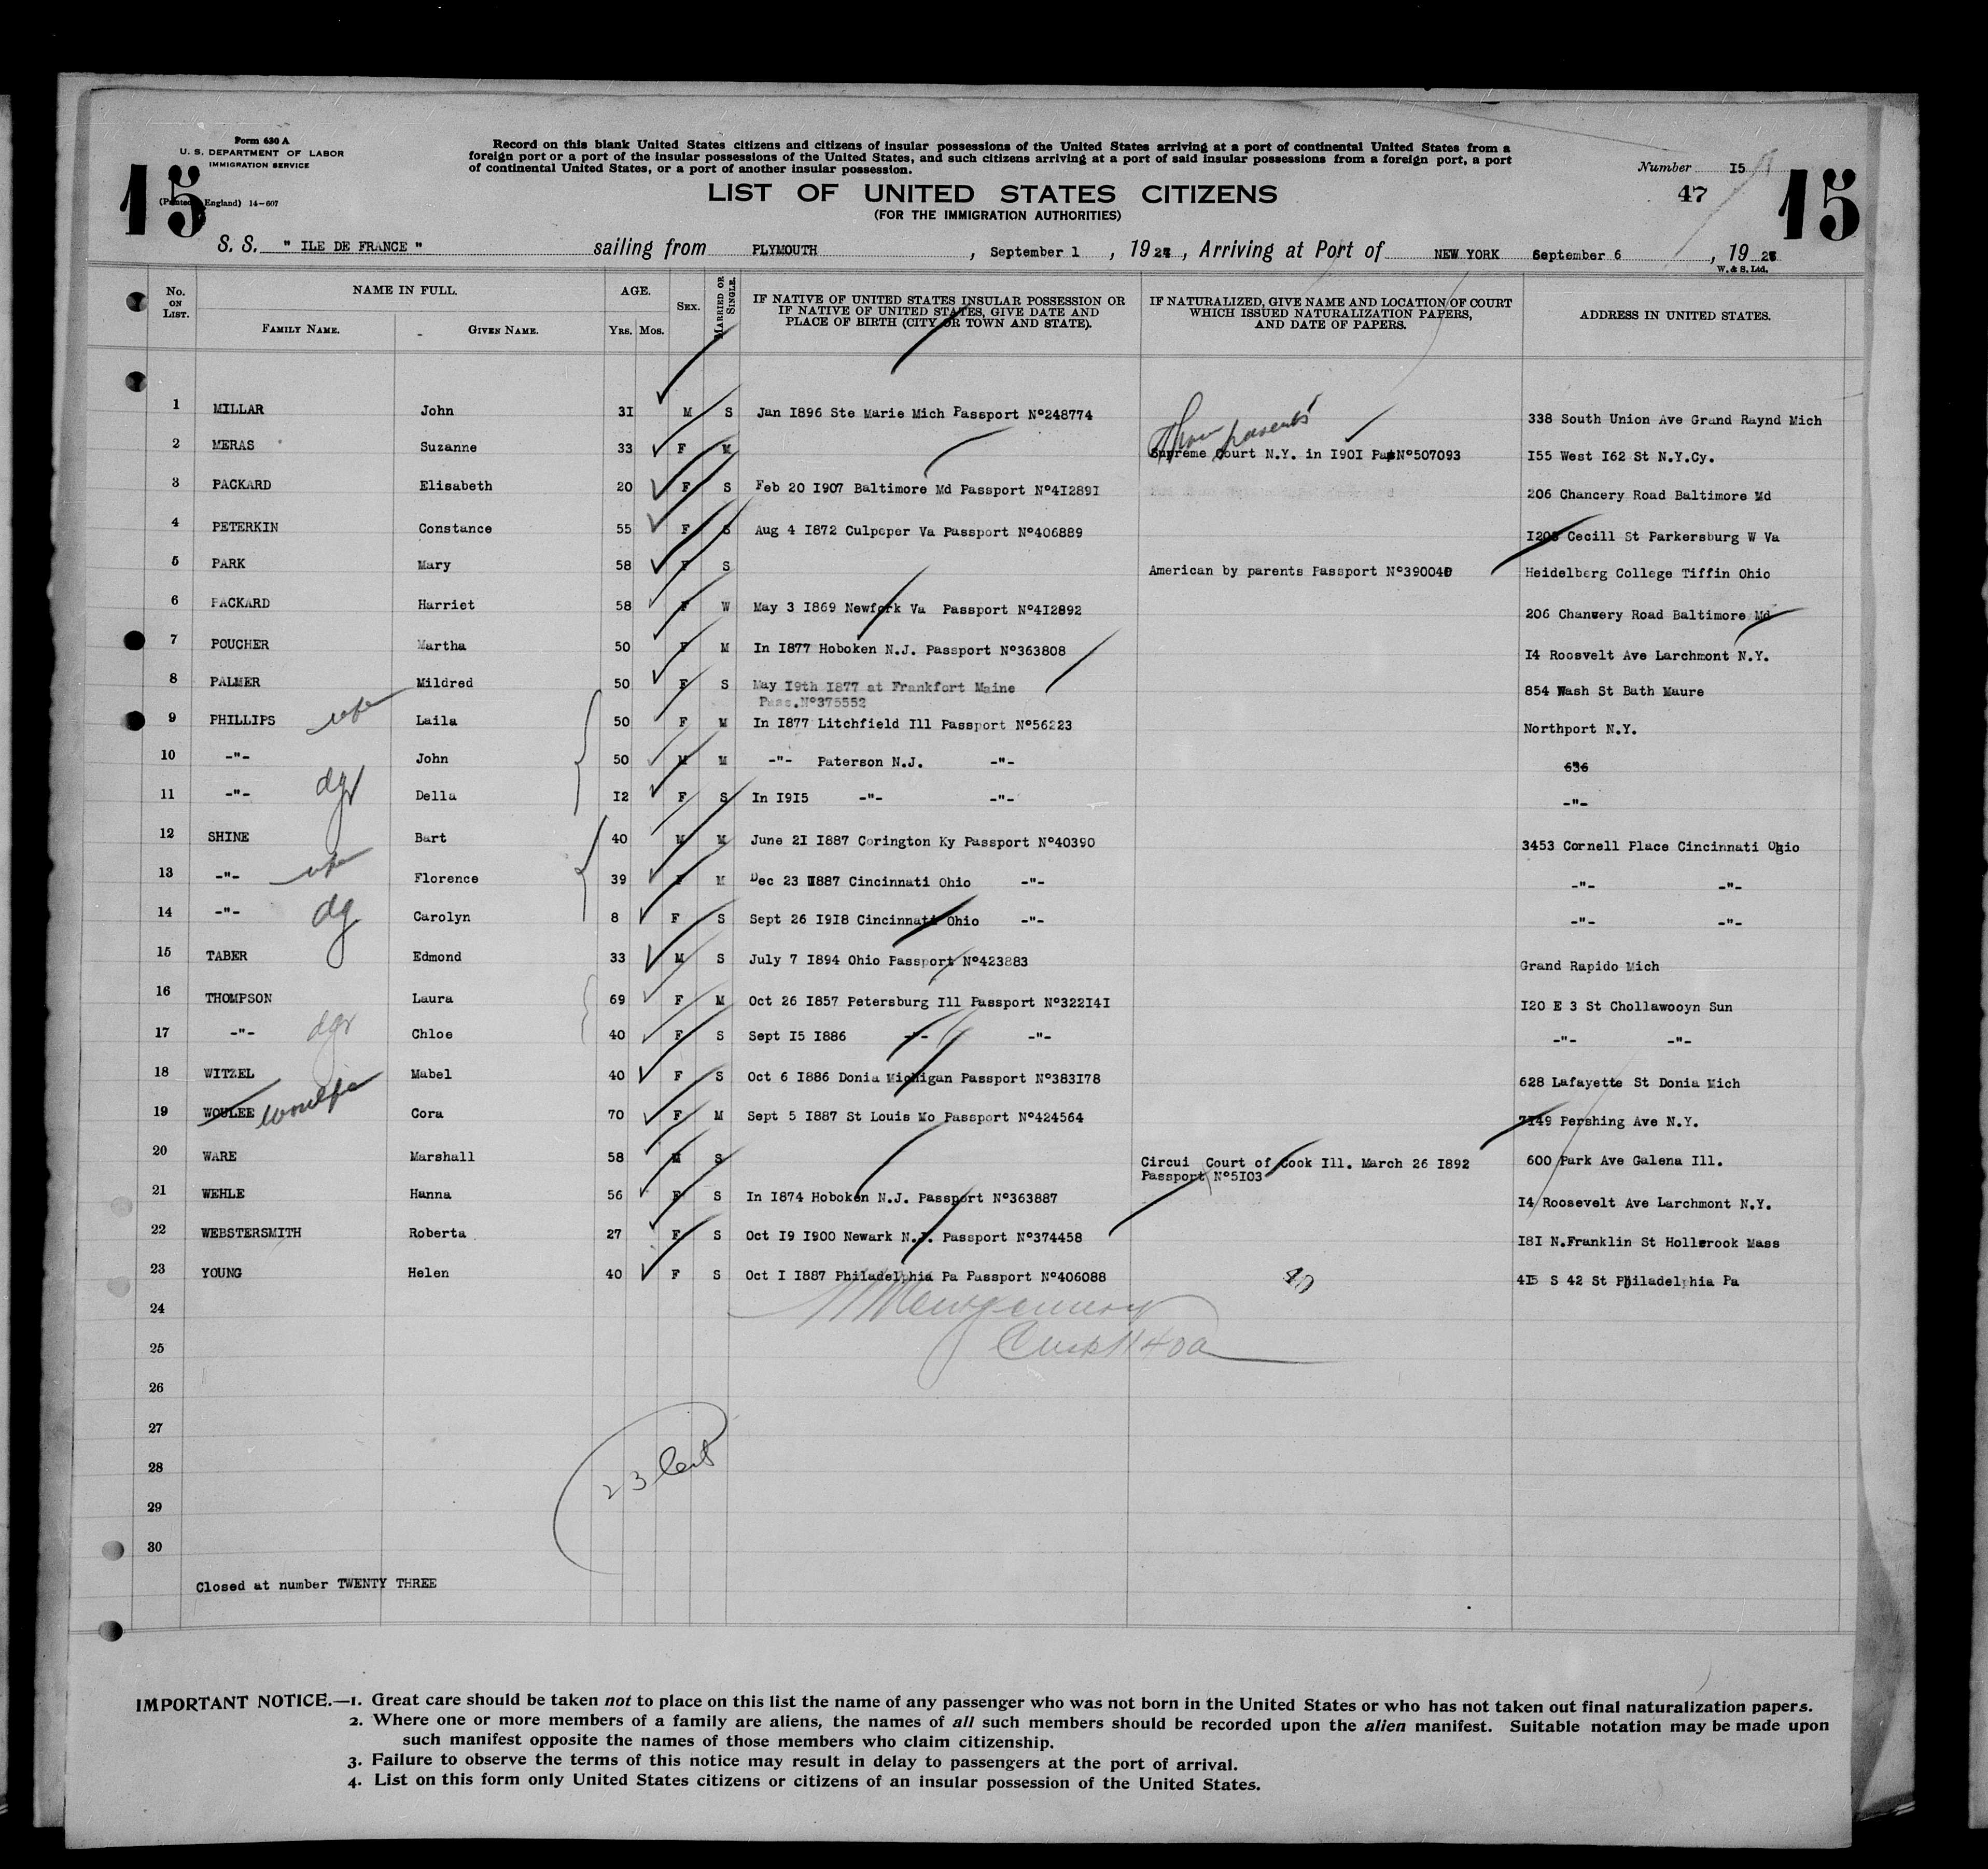 Form 630 A
U. S. DEPARTMENT OF LABOR
IMMIGRATION SERVICE
15
(Printed England) 14-607
Record on this blank United States citizens and citizens of insular possessions of the United States arriving at a port of continental United States from a
foreign port or a port of the insular possessions of the United States, and such citizens arriving at a port of said insular possessions from a foreign port, a port
of continental United States, or a port of another insular possession.
LIST OF UNITED STATES CITIZENS
(FOR THE IMMIGRATION AUTHORITIES)
Number I5
47
15
S. S. " ILE DE FRANCE " sailing from PLYMOUTH , September 1 , 1927 , Arriving at Port of NEW YORK September 6 , 1927
W. & S. Ltd.
No. ON LIST. NAME IN FULL. AGE. SEX. MARRIED OR SINGLE. IF NATIVE OF UNITED STATES INSULAR POSSESSION OR IF NATIVE OF UNITED STATES, GIVE DATE AND PLACE OF BIRTH (CITY OR TOWN AND STATE). IF NATURALIZED, GIVE NAME AND LOCATION OF COURT WHICH ISSUED NATURALIZATION PAPERS, AND DATE OF PAPERS. ADDRESS IN UNITED STATES.
FAMILY NAME. - GIVEN NAME. YRS. MOS.
1 MILLAR John 3I M S Jan I896 Ste Marie Mich Passport Nº248774 338 South Union Ave Grand Raynd Mich
parents
2 MERAS Suzanne 33 F M Supreme Court N.Y. in I90I Pas Nº507093 I55 West I62 St N.Y.Cy.
3 PACKARD Elisabeth 20 F S Feb 20 I907 Baltimore Md Passport Nº4I289I 206 Chancery Road Baltimore Md
4 PETERKIN Constance 55 F S Aug 4 I872 Culpeper Va Passport Nº406889 Cecill St Parkersburg W Va
5 PARK Mary 58 F S American by parents Passport Nº39004 Heidelberg College Tiffin Ohio
6 PACKARD Harriet 58 F W May 3 I869 Newfork Va Passport Nº4I2892 206 Chancery Road Baltimore Md
7 POUCHER Martha 50 F M In I877 Hoboken N.J. Passport Nº363808 I4 Roosvelt Ave Larchmont N.Y.
8 PALMER Mildred 50 F S May I9th I877 at Frankfort Maine 854 Wash St Bath Maure
Pass.Nº375552
9 PHILLIPS wife Laila 50 F M In I877 Litchfield Ill Passport Nº56223 Northport N.Y.
10 -"- John 50 M M -"- Paterson N.J. -"- 636
11 -"- dgr Della I2 F S In I9I5 -"- -"- -"-
12 SHINE Bart 40 M M June 2I I887 Corington Ky Passport Nº40390 3453 Cornell Place Cincinnati Ohio
13 -"- wife Florence 39 F M Dec 23 I887 Cincinnati Ohio -"- -"- -"-
14 -"- dg Carolyn 8 F S Sept 26 I9I8 Cincinnati Ohio -"- -"- -"-
15 TABER Edmond 33 M S July 7 I894 Ohio Passport Nº423883 Grand Rapido Mich
16 THOMPSON Laura 69 F M Oct 26 I857 Petersburg Ill Passport Nº322I4I I20 E 3 St Chollawooyn Sun
17 -"- dgr Chloe 40 F S Sept I5 I886 -"- -"- -"- -"-
18 WITZEL Mabel 40 F S Oct 6 I886 Donia Michigan Passport Nº383I78 628 Lafayette St Donia Mich
19 WOULEE Woulfe Cora 70 F M Sept 5 I887 St Louis Mo Passport Nº424564 7I49 Pershing Ave N.Y.
20 WARE Marshall 58 M S Circui Court of Cook Ill. March 26 I892 600 Park Ave Galena Ill.
Passport Nº5I03
21 WEHLE Hanna 56 F S In I874 Hoboken N.J. Passport Nº363887 I4 Roosevelt Ave Larchmont N.Y.
22 WEBSTERSMITH Roberta 27 F S Oct I9 I900 Newark N.J. Passport Nº374458 I8I N.Franklin St Hollbrook Mass
23 YOUNG Helen 40 F S Oct I I887 Philadelphia Pa Passport Nº406088 4I5 S 42 St Philadelphia Pa
40
24
25
26
27
28
23
29
30
Closed at number TWENTY THREE
IMPORTANT NOTICE.—1. Great care should be taken not to place on this list the name of any passenger who was not born in the United States or who has not taken out final naturalization papers.
2. Where one or more members of a family are aliens, the names of all such members should be recorded upon the alien manifest. Suitable notation may be made upon
such manifest opposite the names of those members who claim citizenship.
3. Failure to observe the terms of this notice may result in delay to passengers at the port of arrival.
4. List on this form only United States citizens or citizens of an insular possession of the United States.